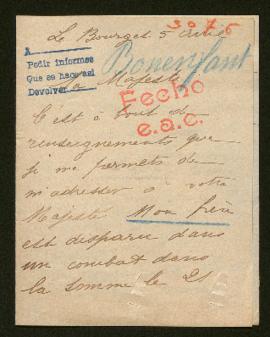 3075
Le Bourget 5 Avril
A
Pedir informse
Que se haga asi
Devolver
Bonenfant
Sa Majesté
Fecho
e.a.c.
C'est à bout de
renseignements que
je me permets de
m'adresser à votre
Majesté Mon frère
est disparu dans
un combat dans
la Somme le 25